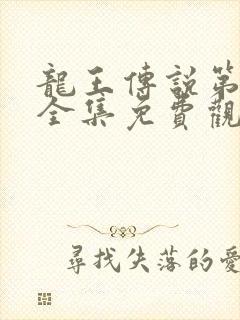 龍王傳說第
全集免費觀
尋找失落的愛